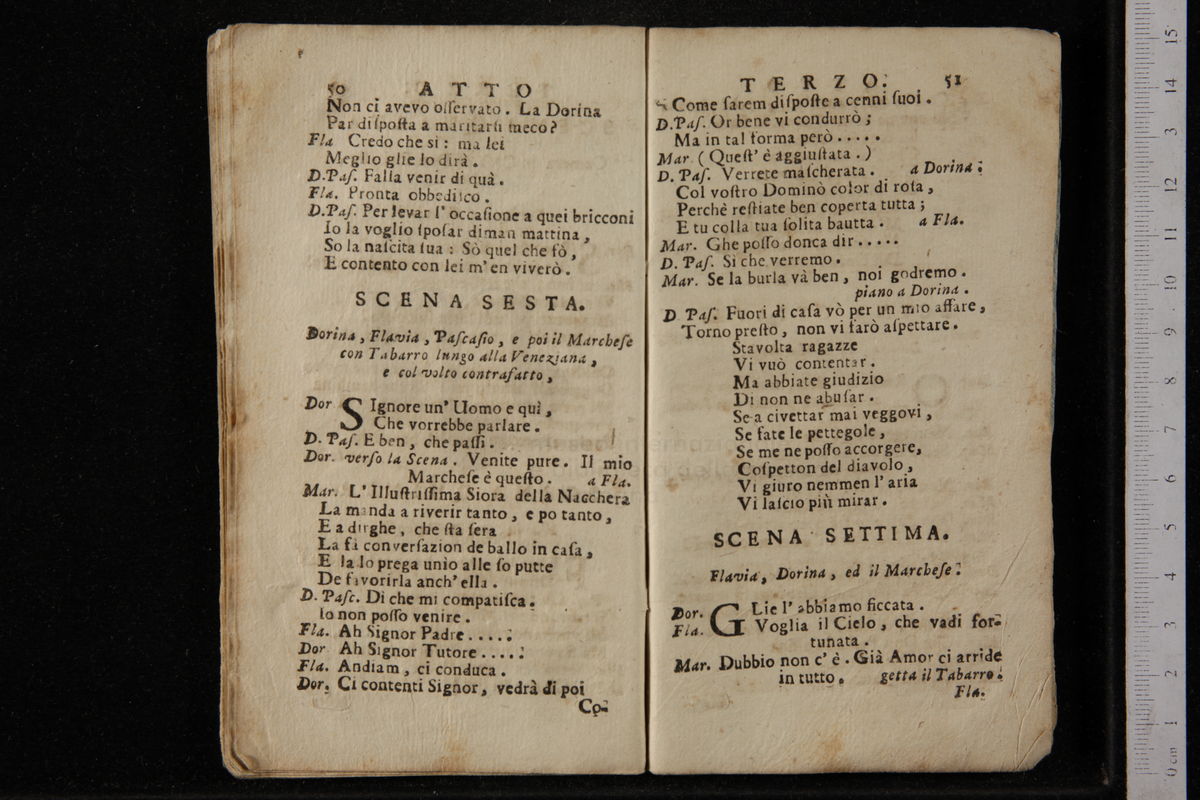 50 ATTO
Non ci avevo oſſervato. La Dorina
Par diſpoſta a maritarſi meco?
Fla Credo che si: ma lei
Meglio glie lo dirà.
D.Paſ. Falla venir di quà.
Fla. Pronta obbediſco.
D.Paſ. Per levar l'occaſione a quei bricconi
Io la voglio ſpoſar diman mattina,
So la naſcita ſua: Sò quel che fò,
E contento con lei m'en viverò.
SCENA SESTA.
Dorina, Flavia, Paſcaſio, e poi il Marcheſe
con Tabarro lungo alla Veneziana,
e col volto contrafatto,
Dor SIgnore un' Uomo e quì,
Che vorrebbe parlare.
D. Paſ. E ben, che paſſi.
Dor. verſo la Scena. Venite pure. Il mio
Marcheſe è queſto. a Fla.
Mar. L'Illuſtriſſima Siora della Nacchera
La manda a riverir tanto, e po tanto,
E a dirghe, che ſta ſera
La fà converſazion de ballo in caſa,
E la lo prega unio alle ſo putte
De favorirla anch' ella.
D. Paſc. Di che mi compatiſca.
Io non poſſo venire.
Fla. Ah Signor Padre....:
Dor Ah Signor Tutore....:
Fla. Andiam, ci conduca.
Dor. Ci contenti Signor, vedrà di poi
Co-
TERZO. 51
Come ſarem diſpoſte a cenni ſuoi.
D.Paſ. Or bene vi condurrò;
Ma in tal forma però.....
Mar (Queſt' è aggiuſtata.)
D. Paſ. Verrete maſcherata. a Dorina:
Col voſtro Dominò color di roſa,
Perchè reſtiate ben coperta tutta;
E tu colla tua ſolita bautta. a Fla.
Mar. Ghe poſſo donca dir.....
D. Paſ. Si che verremo.
Mar. Se la burla và ben, noi godremo.
piano a Dorina.
D Paſ. Fuori di caſa vò per un mio affare,
Torno preſto, non vi farò aſpettare.
Stavolta ragazze
Vi vuò contentar.
Ma abbiate giudizio
Di non ne abuſar.
Se a civettar mai veggovi,
Se fate le pettegole,
Se me ne poſſo accorgere,
Coſpetton del diavolo,
Vi giuro nemmen l'aria
Vi laſcio più mirar.
SCENA SETTIMA.
Flavia, Dorina, ed il Marcheſe.
Dor. GLie l'abbiamo ficcata.
Fla. Voglia il Cielo, che vadi for-
tunata.
Mar. Dubbio non c'è. Già Amor ci arride
in tutto. getta il Tabarro.
Fla.
0 cm 1 2 3 4 5 6 7 8 9 10 11 12 13 14 15